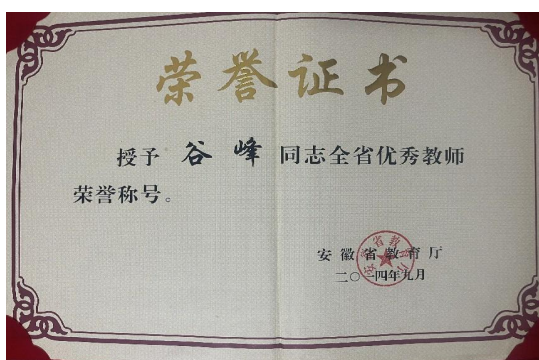 荣誉证书
授予 谷峰 同志全省优秀教师
荣誉称号。
安徽省教育厅
二〇一四年九月